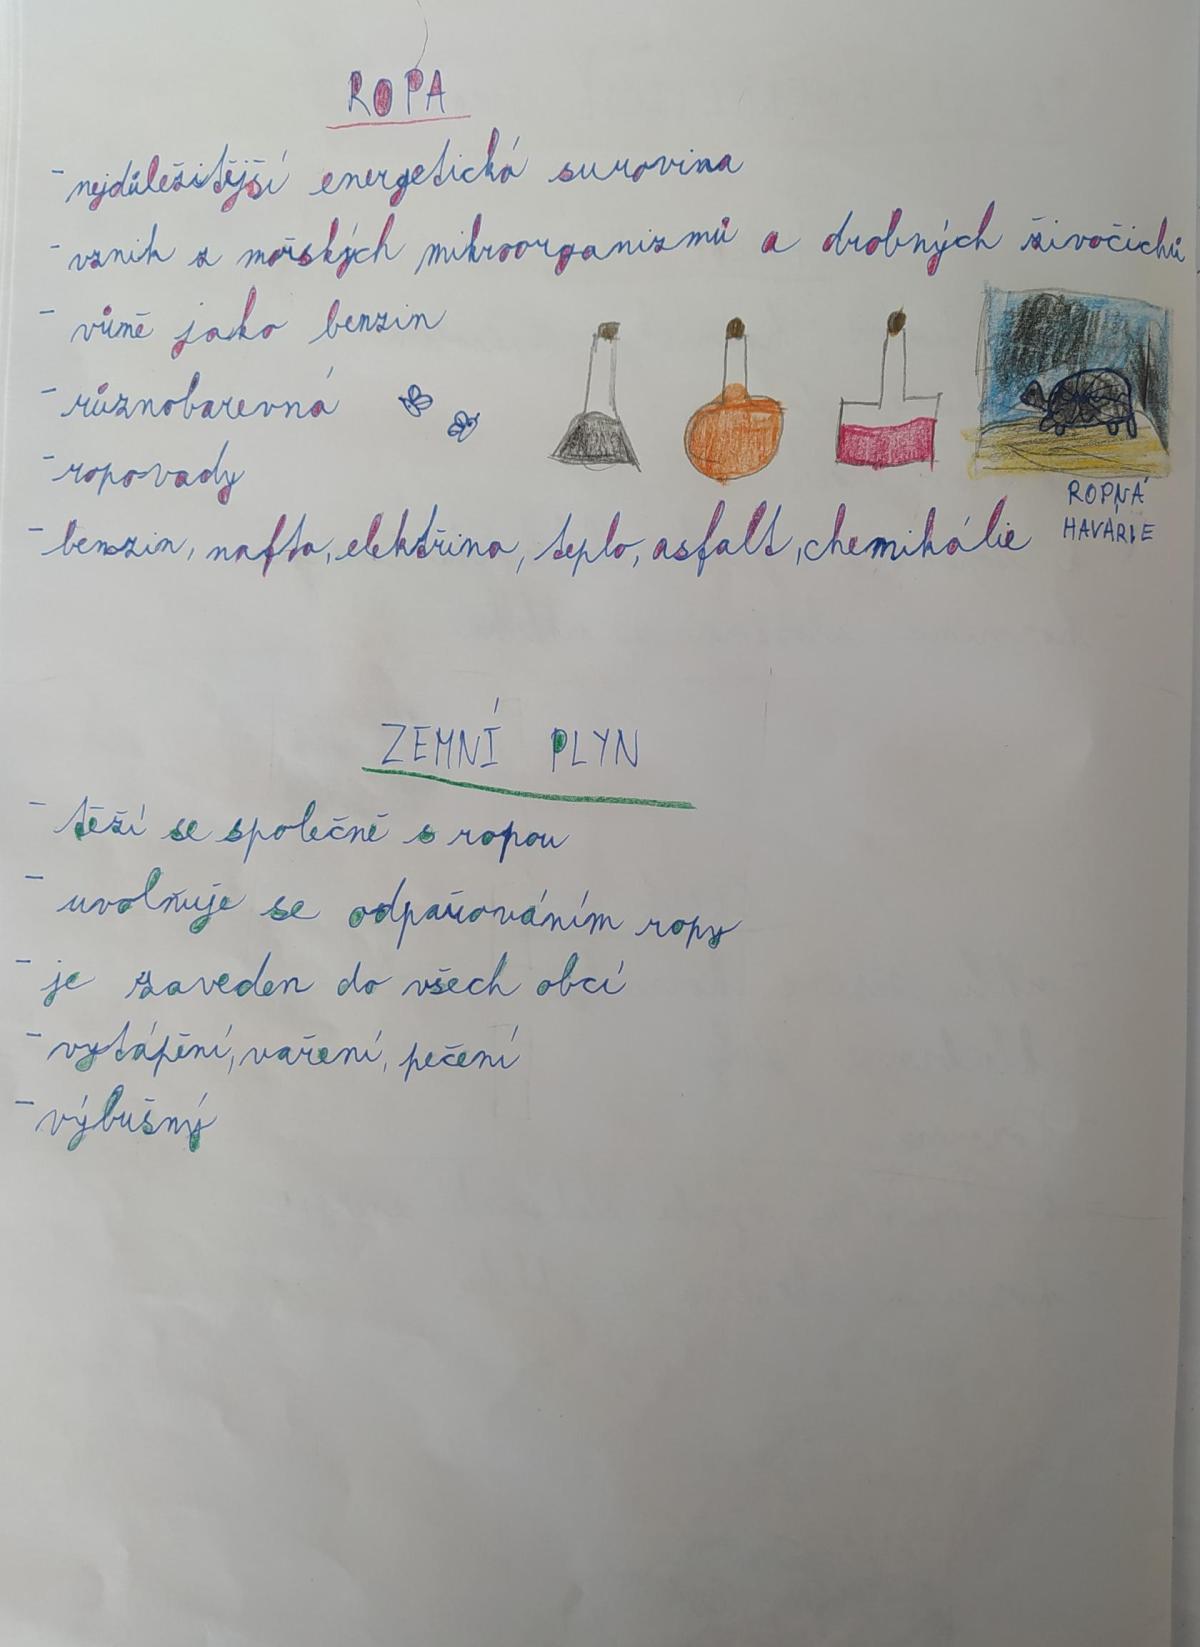 ROPA
- nejdůležitější energetická surovina
- vznik z mořských mikroorganizmů a drobných živočichů
- vůně jako benzin
- různobarevná
- ropovady
ROPNÁ
HAVÁRIE
- benzin, nafta, elektřina, teplo, asfalt, chemikálie
ZEMNÍ PLYN
- těží se společně s ropou
- uvolňuje se odpařováním ropy
- je zaveden do všech obcí
- vytápění, vaření, pečení
- výbušný